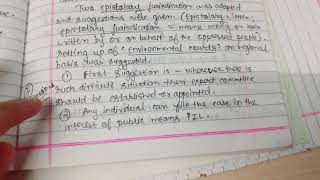 Two epistolary jurisdication was adopted
and suggestions were given (Epistolary = letter.
epistolary jurisdication = means acting on letter
written by or on behalf of the oppressed people)
setting up of 'environmental courts' on regional
basis two suggested.
① First Suggestion is - wherever there is
such difficult situation then expert committee
should be established or appointed.
② Any individual can file the case in the
interest of public means P.I.L.